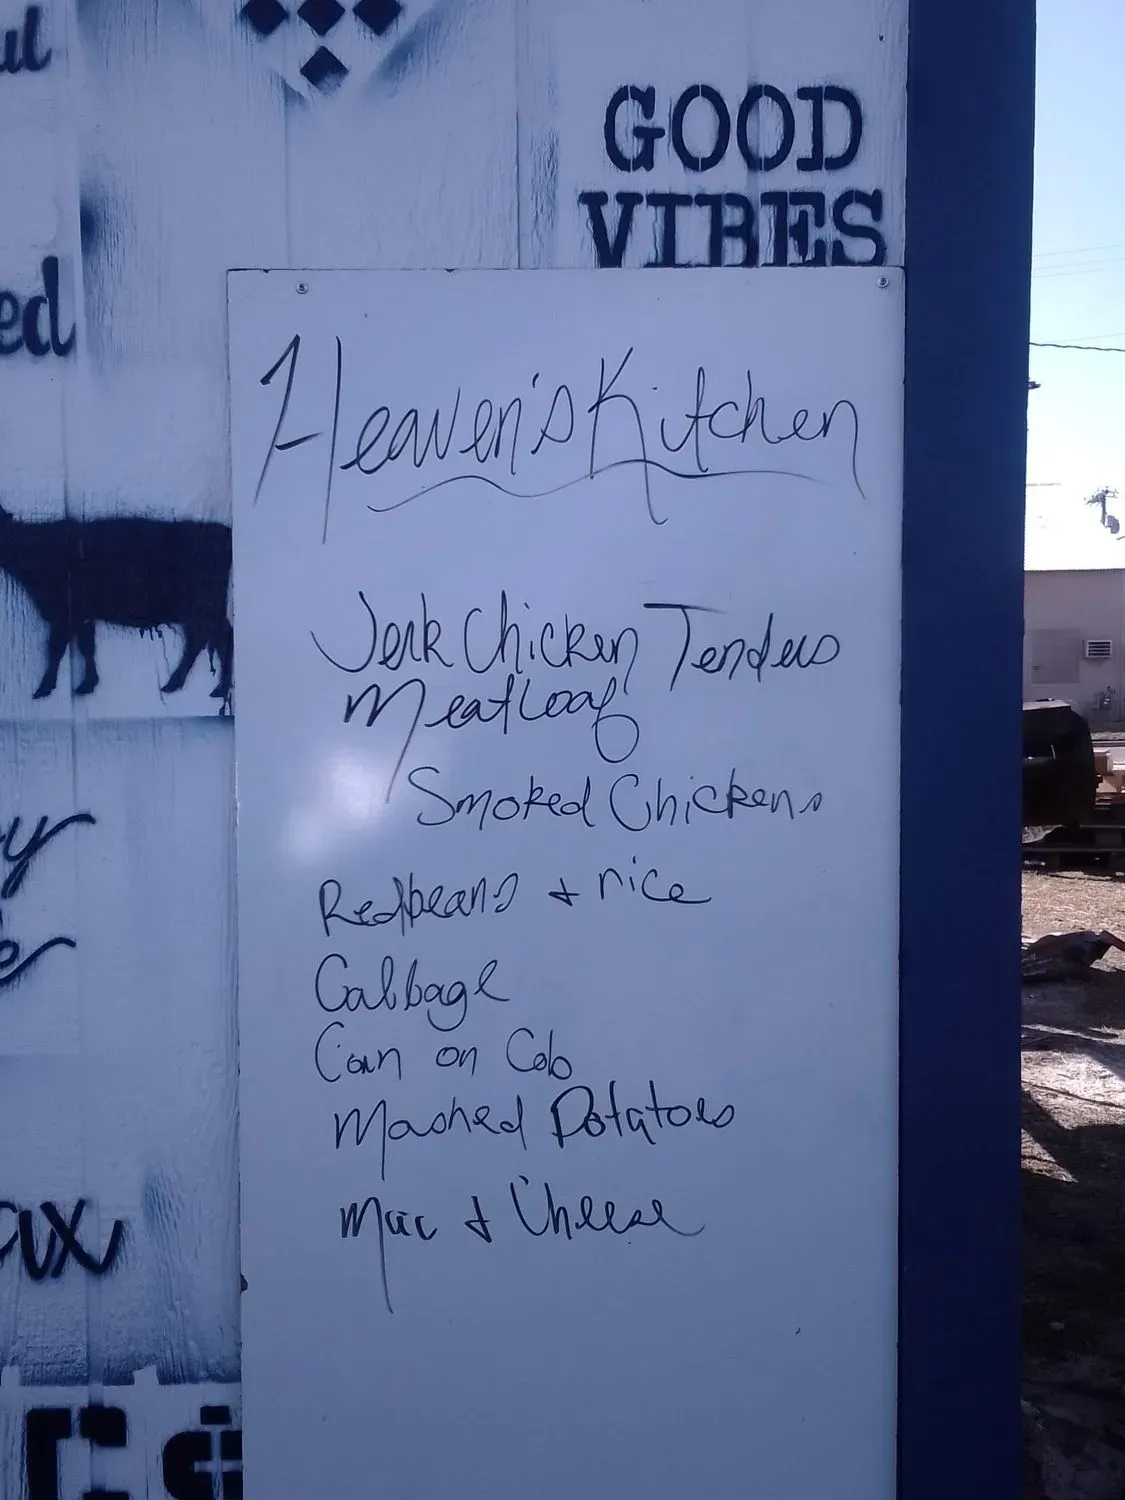 GOOD
VIBES
ed
Heaven's Kitchen
Jerk Chicken Tenders
Meatloaf
Smoked Chickens
Redbeans + rice
Cabbage
Corn on Cob
Mashed Potatoes
Mac & Cheese